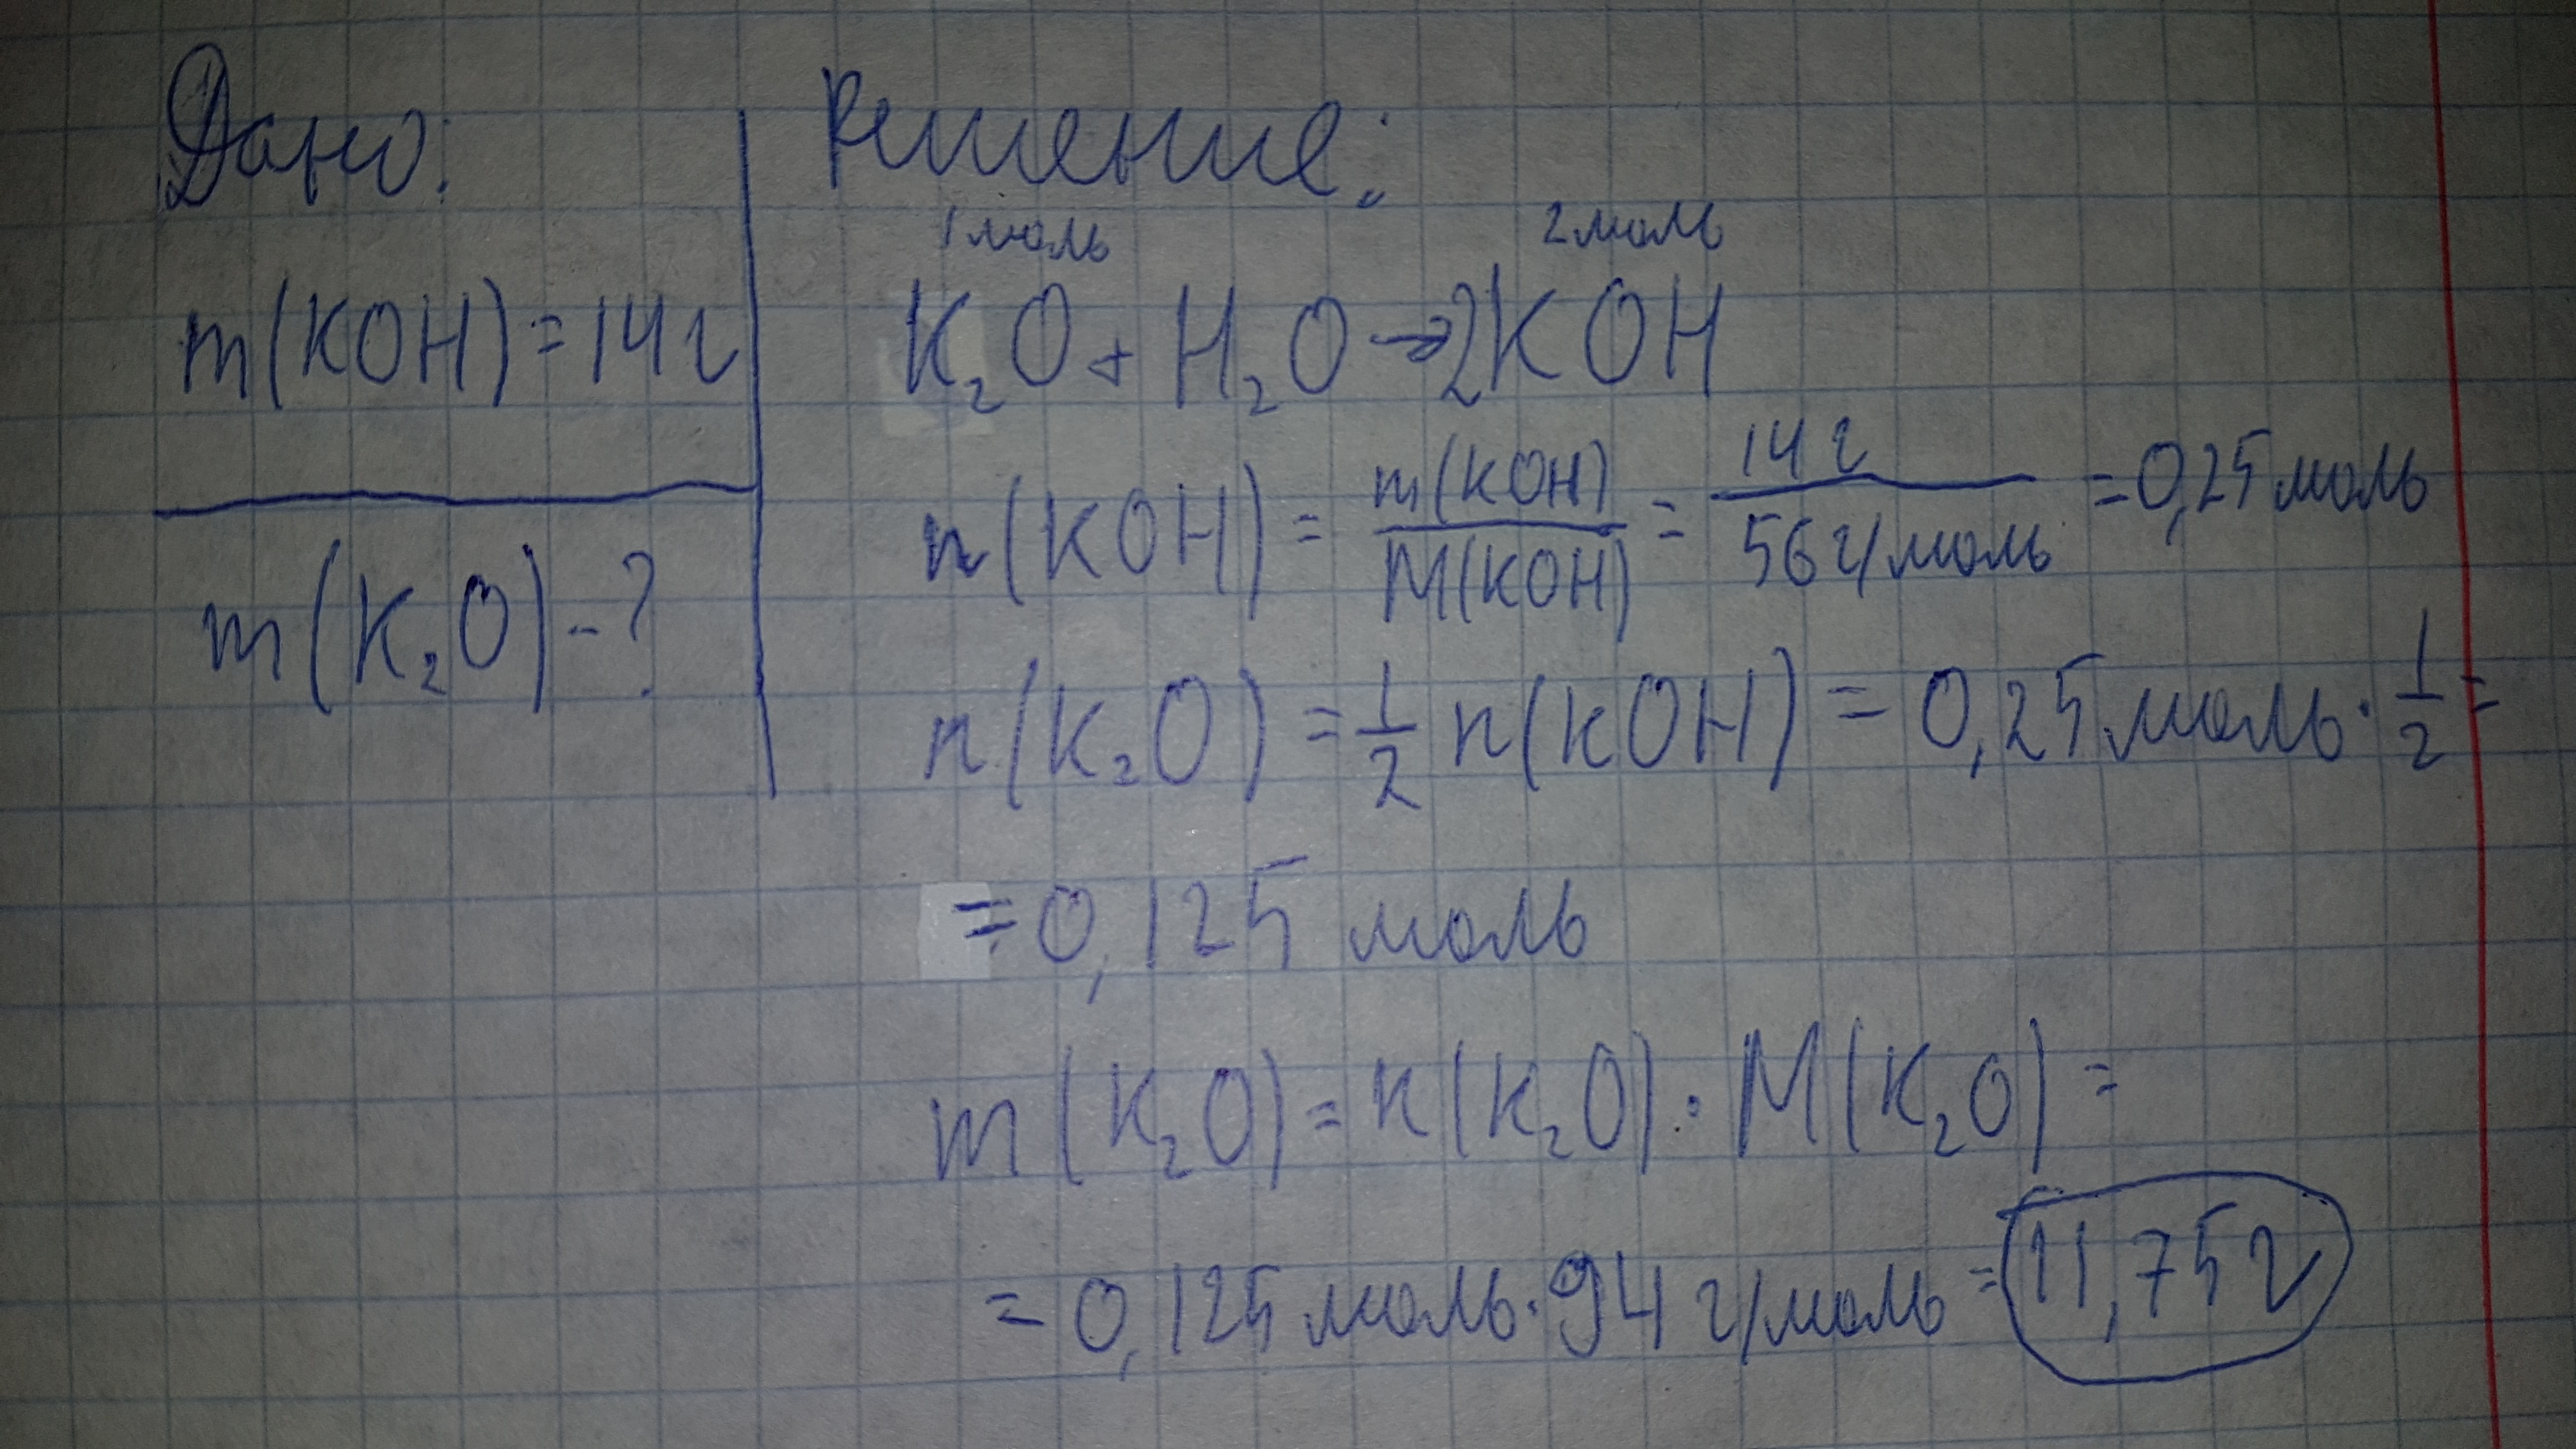 Дано:
m(KOH)=14г
m(K₂O)-?
Решение:
1моль 2моль
K₂O+H₂O→2KOH
n(KOH)=m(KOH)/M(KOH)=14г/56г/моль=0,25моль
n(K₂O)=1/2 n(KOH)=0,25моль·1/2=
=0,125 моль
m(K₂O)=n(K₂O)·M(K₂O)=
=0,125моль·94г/моль=11,75г